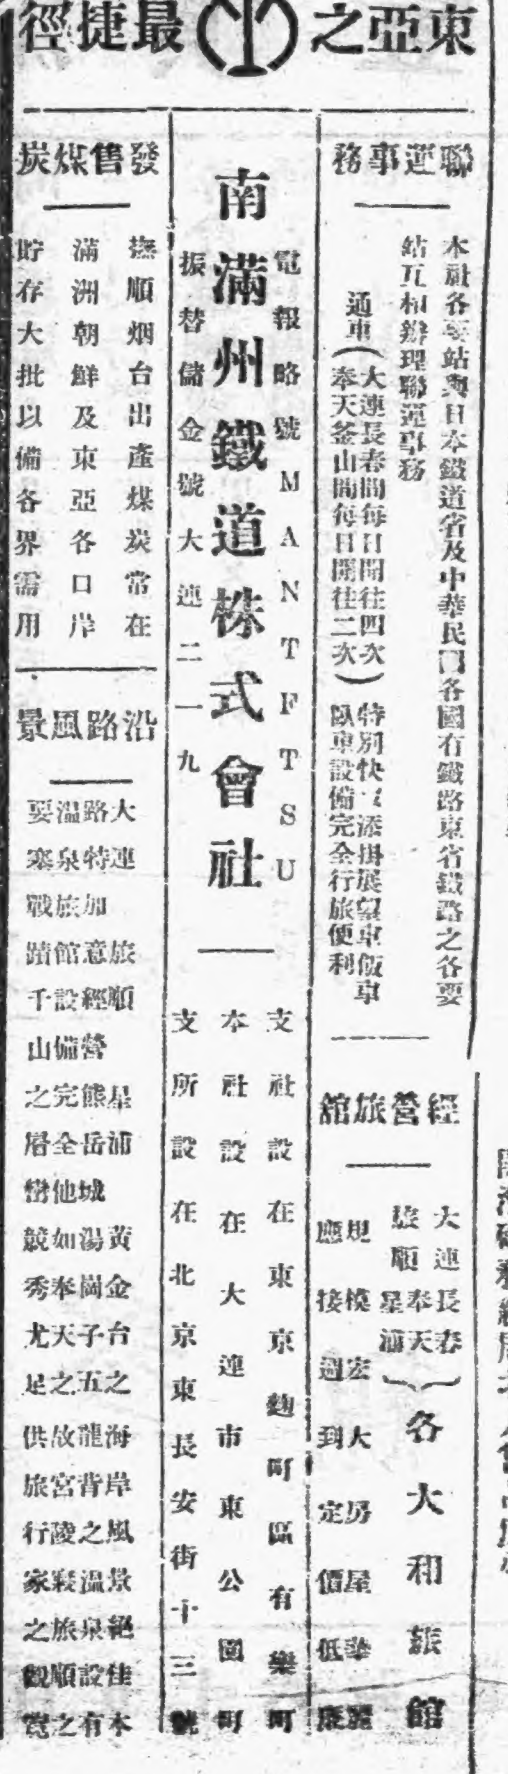 東亞之最捷徑
聯運事務
本社各要站與日本鐵道省及中華民國各國有鐵路東省鐵路之各要
站互相辦理聯運事務
通車(大連長春間每日開往四次
奉天釜山間每日開往二次)
特別快車添掛展望車飯車
臥車設備完全行旅便利
經營旅館
大連長春
奉天
旅順星浦
各大和旅館
規模宏大房屋華麗
應接週到定價低廉
電報略號MANTFTSU
南滿州鐵道株式會社
振替儲金號大連二一九
支社設在東京麴町區有樂町
本社設在大連市東公園町
支所設在北京東長安街十三號
發售煤炭
撫順烟台出產煤炭常在
滿洲朝鮮及東亞各口岸
貯存大批以備各界需用
沿路風景
大連 旅順 星浦 黃金台之海岸風景絕佳本
路特加意經營熊岳城湯崗子五龍背之溫泉設有
溫泉旅館設備完全他如奉天之故宮陵寢旅順之
要塞戰蹟千山之層巒競秀尤足供旅行家之觀覽